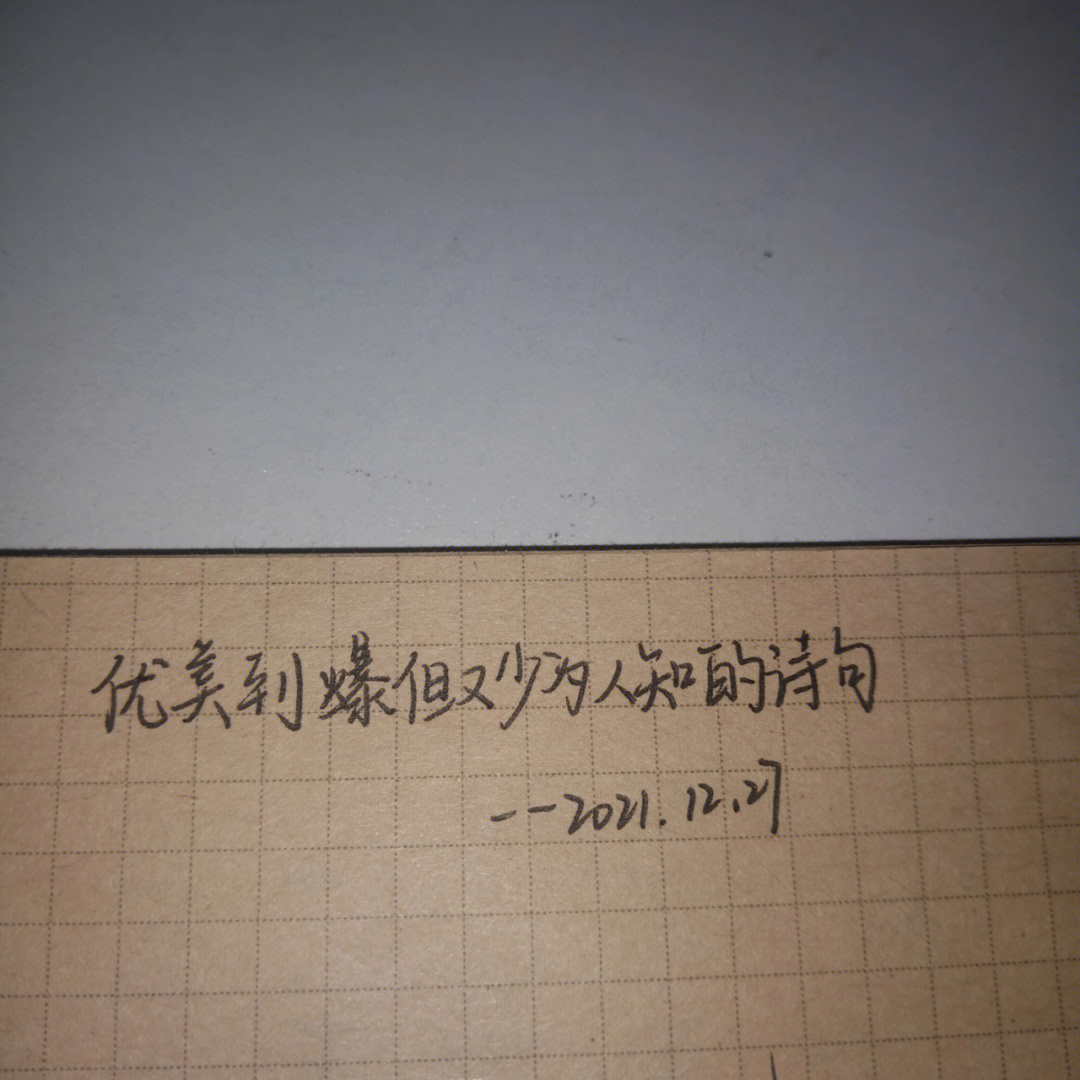 优美到爆但又少为人知的诗句
--2021.12.27